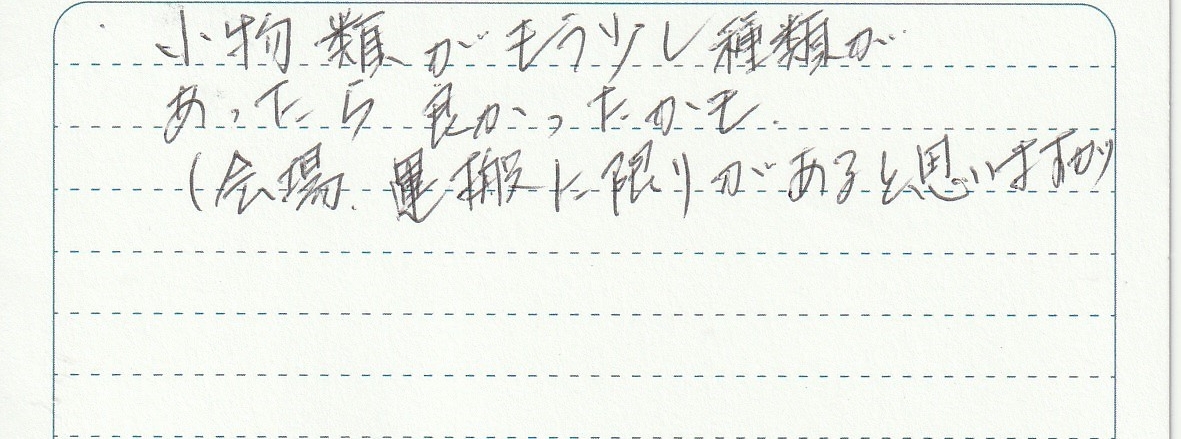 小物類がもう少し種類が
あったら良かったかも.
(会場、運搬に限りがあると思いますが)